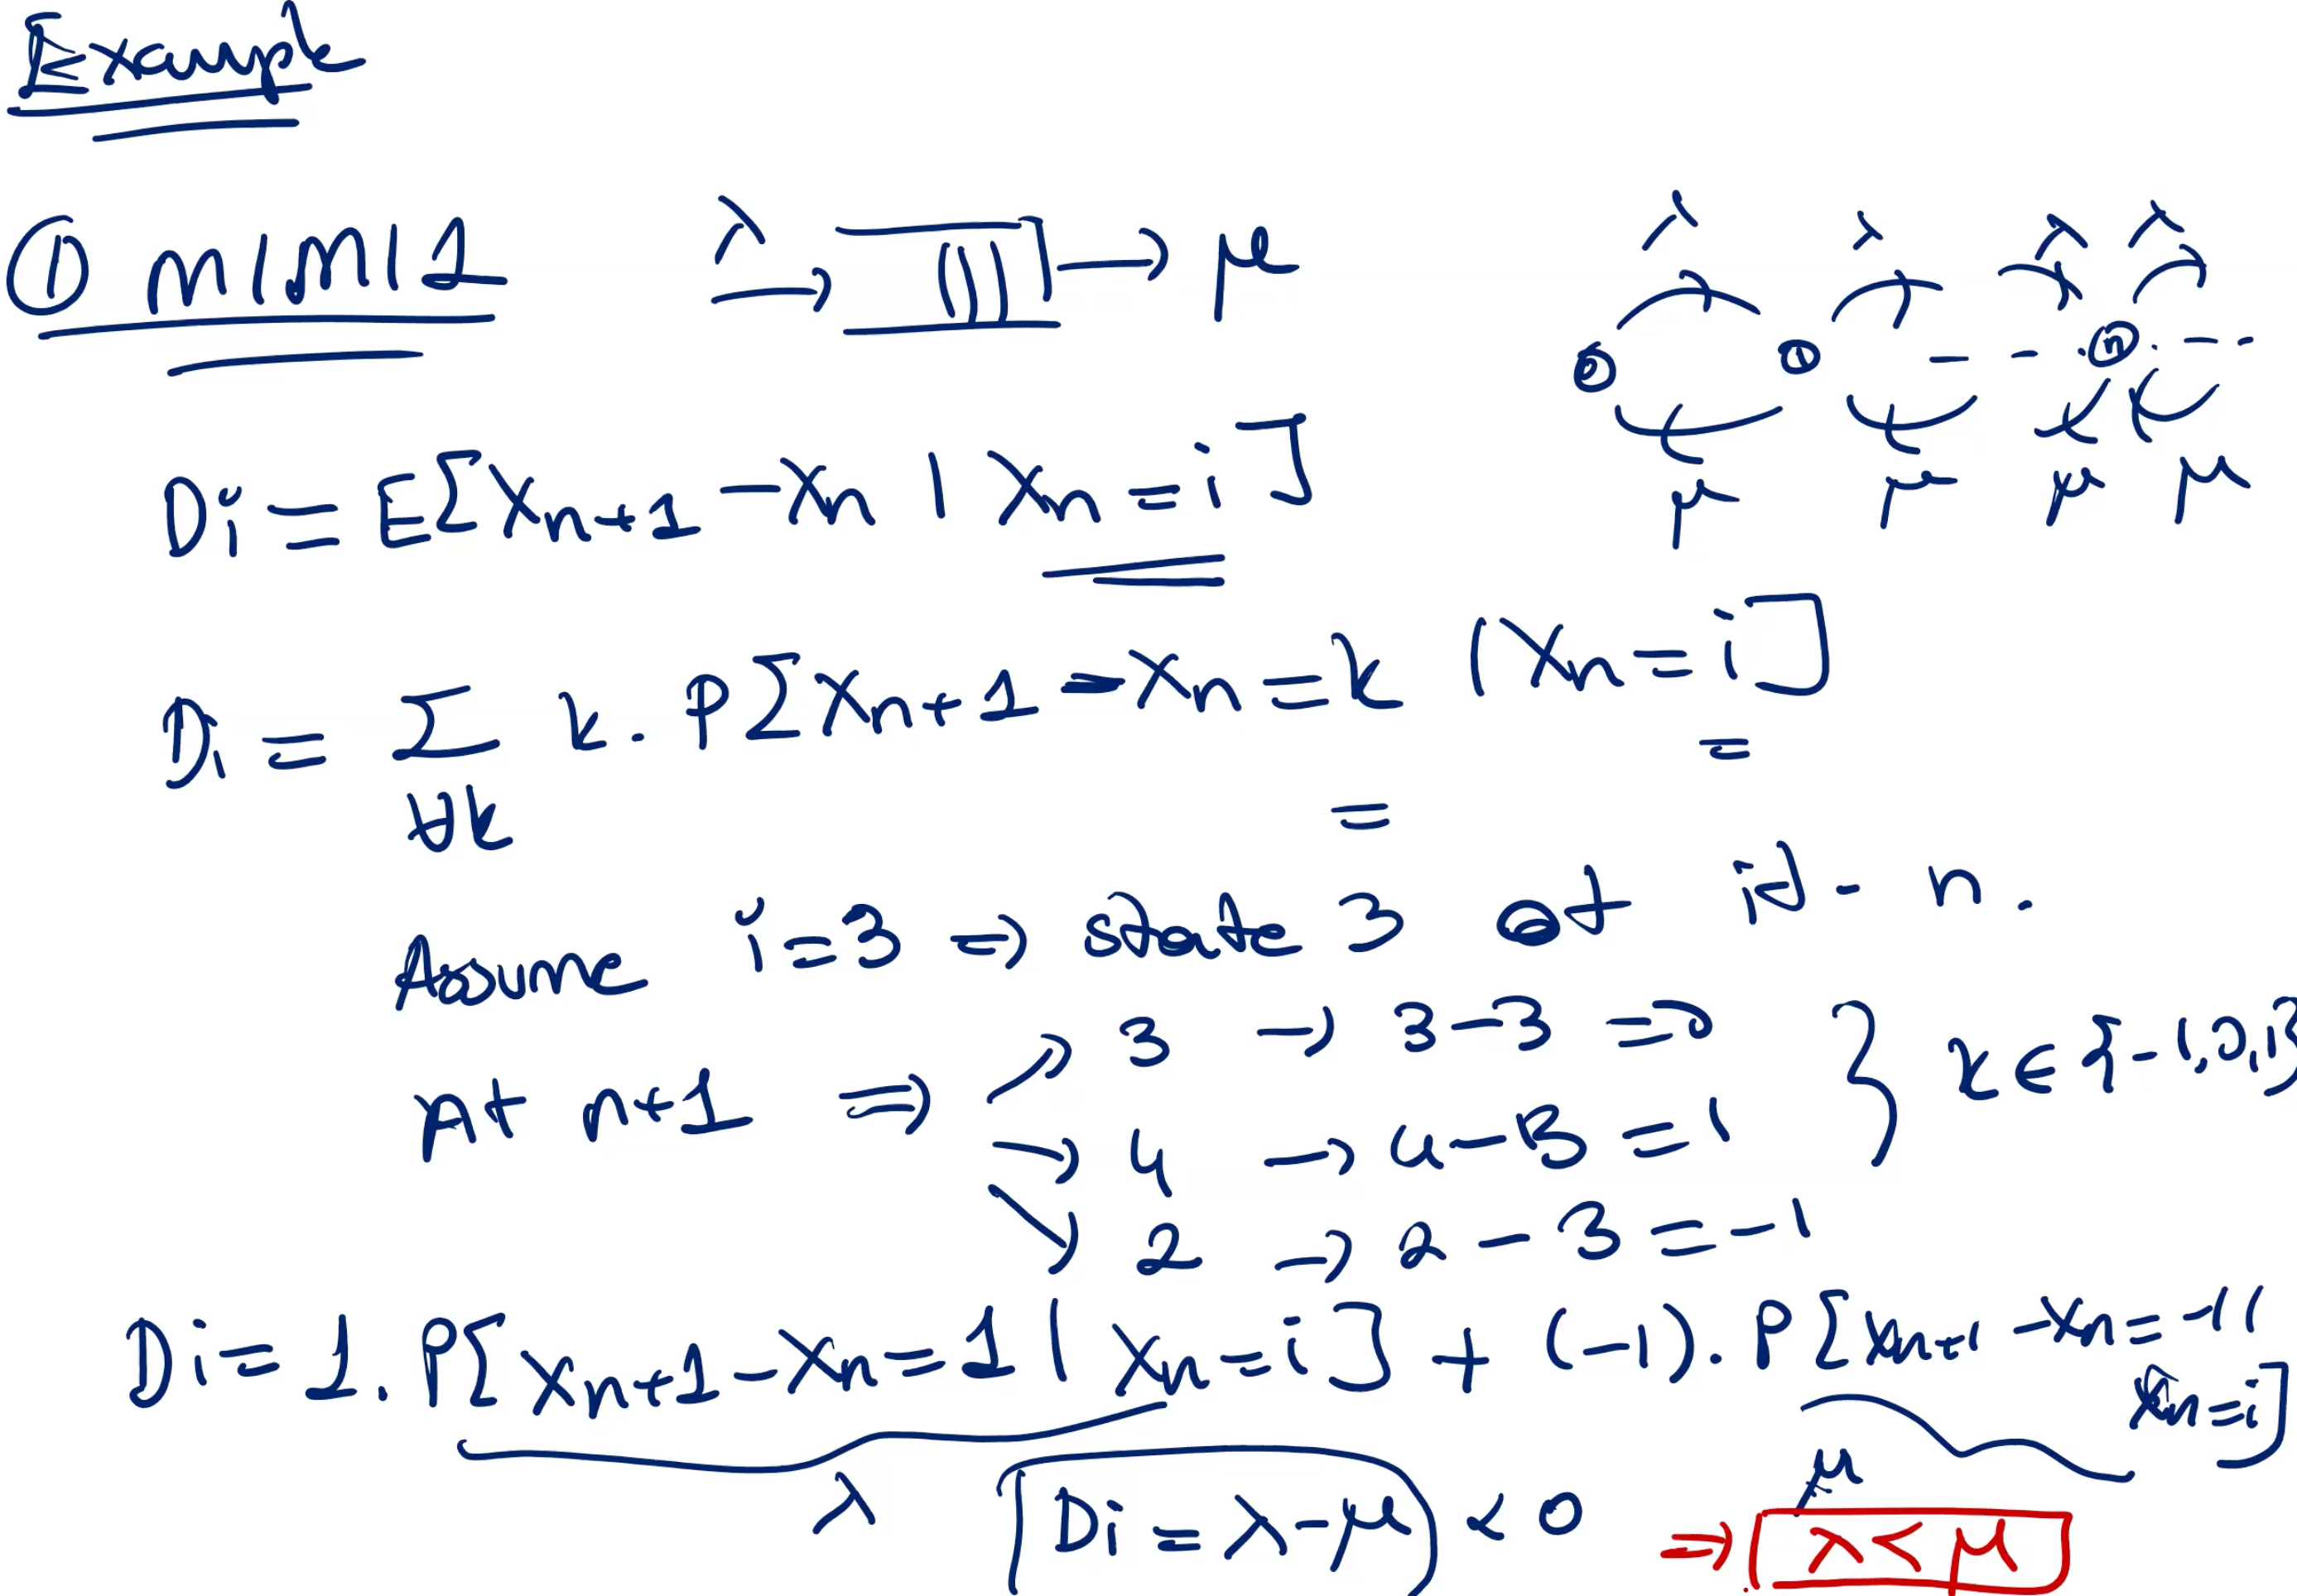 Example
① M|M|1 λ → → μ
λ λ λ λ
0 1 - - · n · - -
μ μ μ μ
Di = E[Xn+1 - Xn | Xn = i]
Di = Σ k. P[Xn+1 - Xn = k | Xn = i]
∀k
=
=
Assume i=3 ⇒ state 3 at n.
At n+1 ⇒ 3 → 3-3 = 0
4 → 4-3 = 1 } k ∈ {-1,0,1}
2 → 2-3 = -1
Di = 1. P[Xn+1 - Xn = 1 | Xn = i] + (-1). P[Xn+1 - Xn = -1 |
Xn = i]
λ Di = λ-μ < 0 μ
⇒ λ < μ